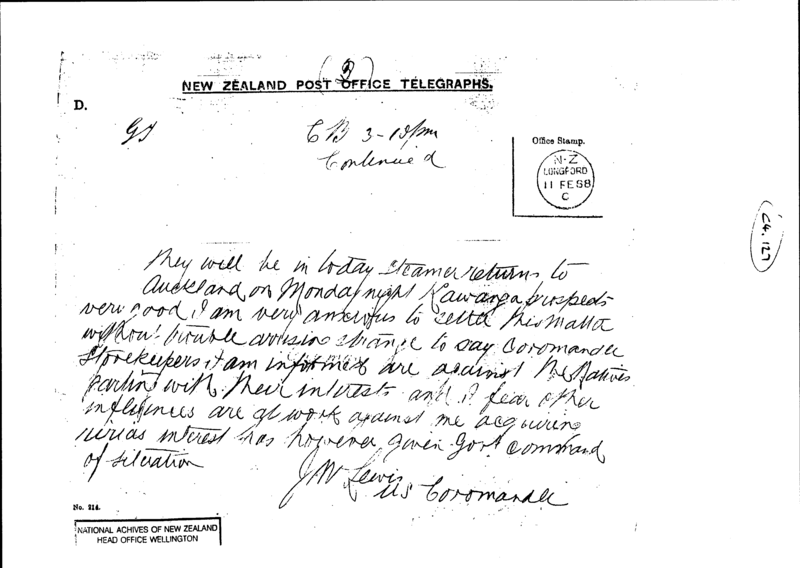 (2)
NEW ZEALAND POST OFFICE TELEGRAPHS.
D.
CB 3-10pm
Continued
Office Stamp.
N-Z
LONGFORD
11 FE 88
C
C4.127
they will be in today Steamer returns to
Auckland on Monday night prospects
very good I am very anxious to settle this matter
without trouble arising strange to say Coromandel
Storekeepers I am informed are against the Natives
parting with their interests and I fear other
influences are at work against me acquiring
interest has however given Govt command
of situation
J W Lewis
US Coromandel
No. 214.
NATIONAL ACHIVES OF NEW ZEALAND
HEAD OFFICE WELLINGTON